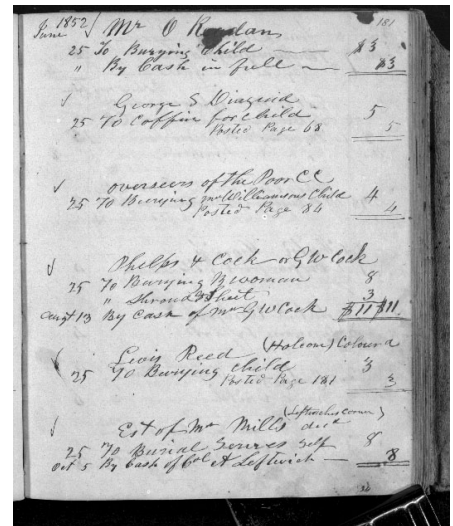 June 1852 Mr O 181
25 To Burying Child $3
" By Cash in full $3
George S Diuguid
25 To Coffin for Child 5
Posted Page 68 5
Overseers of the Poor CC
25 To Burying Mr Williamsons Child 4
Posted Page 84 4
Phelps & Cock or G W Cock
25 To Burying woman 8
" Shroud & Sheet 3
Augt 13 By Cash of Mr G W Cock $11 $11
Lewis Reed (Holcom) Coloured
25 To Burying Child 3
Posted Page 181 3
(Leftwiches Corner)
Est of Mr Mills decd
25 To Burial Services Self 8
Oct 5 By Cash of Col A Leftwich 8